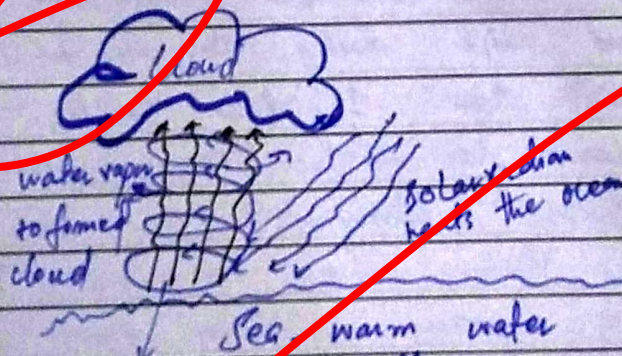 Cloud
water vapour
to formed
cloud
solar
heats the ocean
Sea warm water